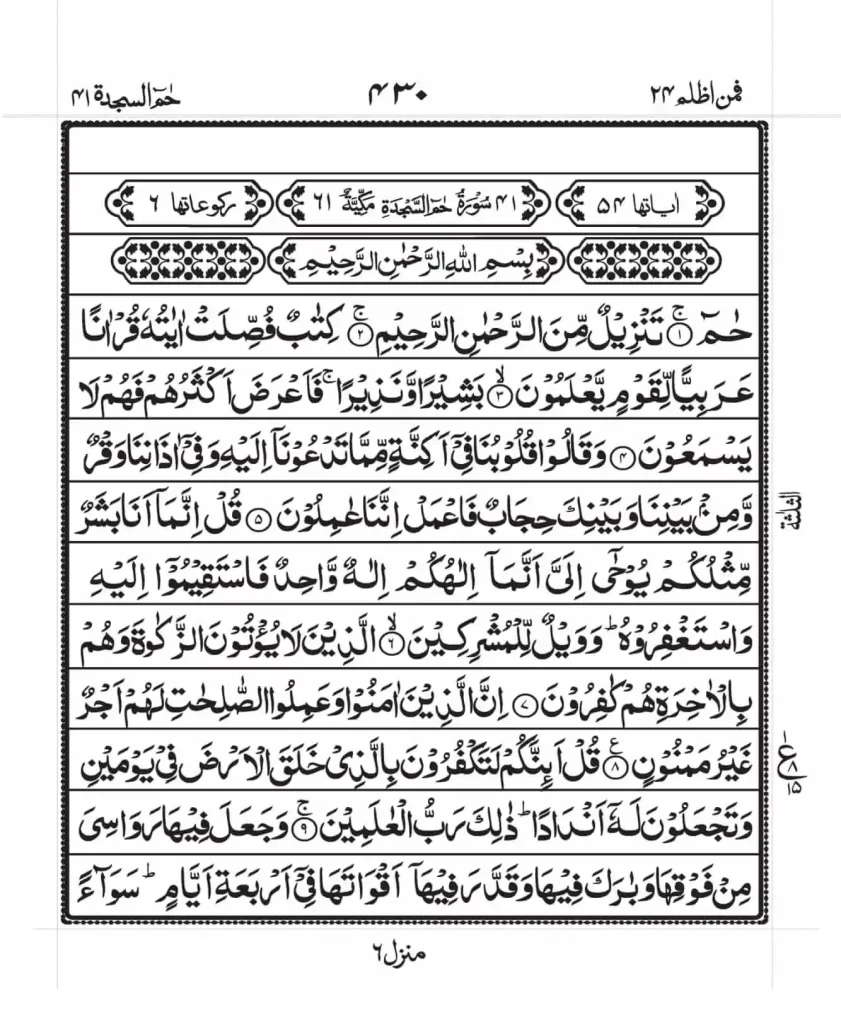 فمن اظلم ۲۴
۴۳۰
حٰمٓ السجدة ۴۱
اٰیاتها ۵۴
۴۱ سُوْرَةُ حٰمٓ السَّجْدَةِ مَكِّیَّةٌ ۶۱
ركوعاتها ۶
بِسْمِ اللهِ الرَّحْمٰنِ الرَّحِیْمِ
حٰمٓ ۚ﴿۱﴾ تَنْزِیْلٌ مِّنَ الرَّحْمٰنِ الرَّحِیْمِ ۚ﴿۲﴾ كِتٰبٌ فُصِّلَتْ اٰیٰتُهٗ قُرْاٰنًا
عَرَبِیًّا لِّقَوْمٍ یَّعْلَمُوْنَ ۙ﴿۳﴾ بَشِیْرًا وَّنَذِیْرًا ۚ فَاَعْرَضَ اَكْثَرُهُمْ فَهُمْ لَا
یَسْمَعُوْنَ ﴿۴﴾ وَقَالُوْا قُلُوْبُنَا فِیْۤ اَكِنَّةٍ مِّمَّا تَدْعُوْنَاۤ اِلَیْهِ وَفِیْۤ اٰذَانِنَا وَقْرٌ
وَّمِنْۢ بَیْنِنَا وَبَیْنِكَ حِجَابٌ فَاعْمَلْ اِنَّنَا عٰمِلُوْنَ ﴿۵﴾ قُلْ اِنَّمَاۤ اَنَا بَشَرٌ
الثلثة
مِّثْلُكُمْ یُوْحٰۤی اِلَیَّ اَنَّمَاۤ اِلٰهُكُمْ اِلٰهٌ وَّاحِدٌ فَاسْتَقِیْمُوْۤا اِلَیْهِ
وَاسْتَغْفِرُوْهُ ؕ وَوَیْلٌ لِّلْمُشْرِكِیْنَ ۙ﴿۶﴾ الَّذِیْنَ لَا یُؤْتُوْنَ الزَّكٰوةَ وَهُمْ
بِالْاٰخِرَةِ هُمْ كٰفِرُوْنَ ﴿۷﴾ اِنَّ الَّذِیْنَ اٰمَنُوْا وَعَمِلُوا الصّٰلِحٰتِ لَهُمْ اَجْرٌ
غَیْرُ مَمْنُوْنٍ ﴿۸﴾ۧ قُلْ اَئِنَّكُمْ لَتَكْفُرُوْنَ بِالَّذِیْ خَلَقَ الْاَرْضَ فِیْ یَوْمَیْنِ
ع ۱ ۸ ۱۵
وَتَجْعَلُوْنَ لَهٗۤ اَنْدَادًا ؕ ذٰلِكَ رَبُّ الْعٰلَمِیْنَ ۚ﴿۹﴾ وَجَعَلَ فِیْهَا رَوَاسِیَ
مِنْ فَوْقِهَا وَبٰرَكَ فِیْهَا وَقَدَّرَ فِیْهَاۤ اَقْوَاتَهَا فِیْۤ اَرْبَعَةِ اَیَّامٍ ؕ سَوَآءً
منزل ۶